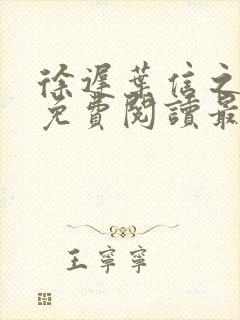 徐遲葉信之
免費閱讀最
王寧寧